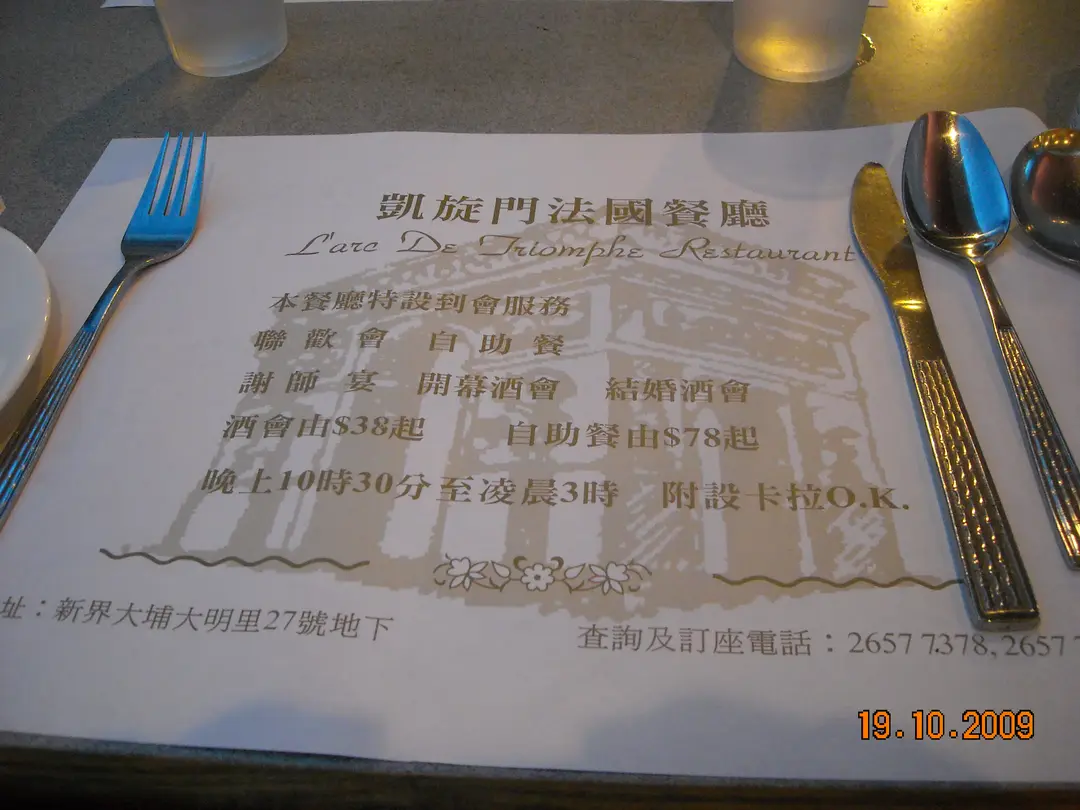 凱旋門法國餐廳
L'arc De Triomphe Restaurant
本餐廳特設到會服務
聯歡會 自助餐
謝師宴 開幕酒會 結婚酒會
酒會由$38起 自助餐由$78起
晚上10時30分至凌晨3時 附設卡拉O.K.
址：新界大埔大明里27號地下
查詢及訂座電話：2657 7378, 2657 7
19.10.2009